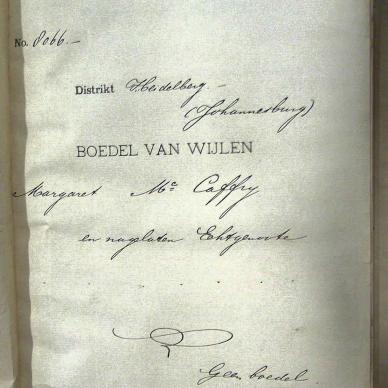 No. 8066.-
Distrikt Heidelberg.-
(Johannesburg)
BOEDEL VAN WIJLEN
Margaret Mc Caffry
en nagelaten Echtgenoote
Geen boedel